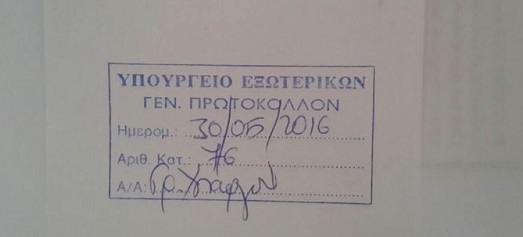 ΥΠΟΥΡΓΕΙΟ ΕΞΩΤΕΡΙΚΩΝ
ΓΕΝ. ΠΡΩΤΟΚΟΛΛΟΝ
Ημερομ.: 30/05/2016
Αριθ. Κατ.: 76
Α/Α: